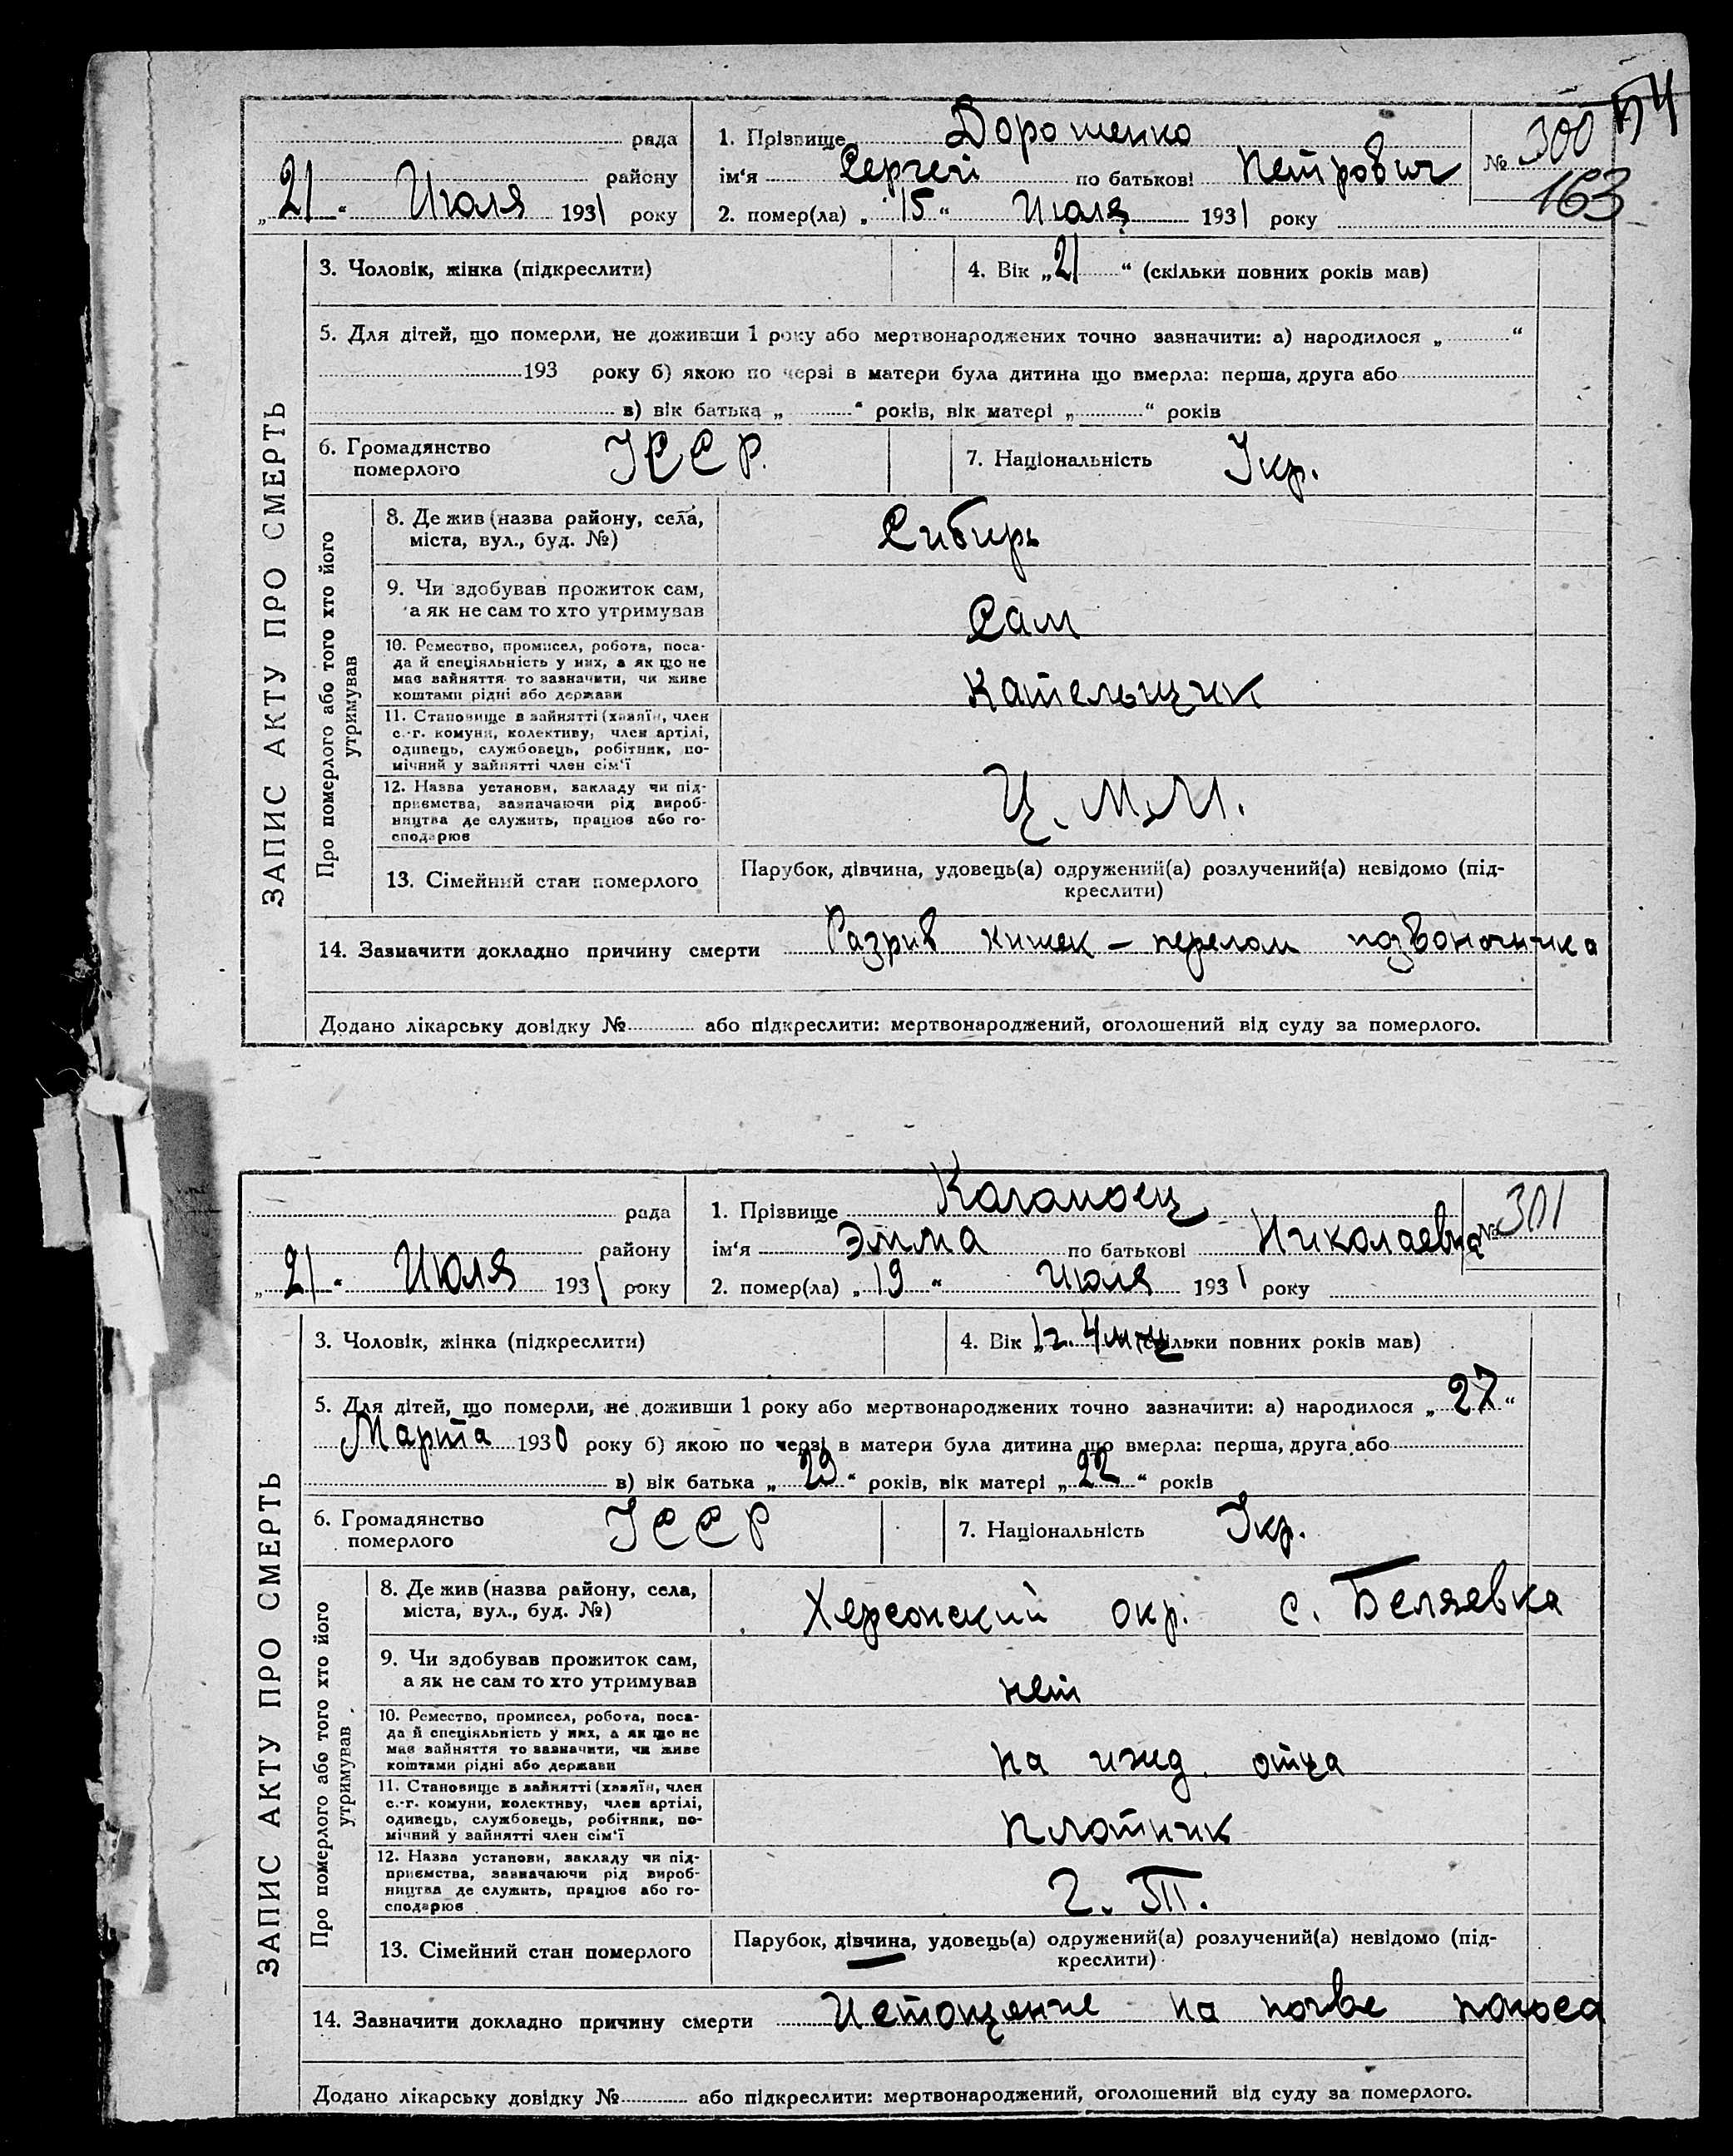 рада
району
„21“ Июля 1931 року
1. Прізвище Дорошенко
ім‘я Сергей по батькові Петрович
2. помер(ла) „15“ Июля 1931 року
№ 300
163
ЗАПИС АКТУ ПРО СМЕРТЬ
3. Чоловік, жінка (підкреслити)
4. Вік „21“ (скільки повних років мав)
5. Для дітей, що померли, не доживши 1 року або мертвонароджених точно зазначити: а) народилося „ “
193 року б) якою по черзі в матери була дитина що вмерла: перша, друга або
в) вік батька „ “ років, вік матері „ “ років
6. Громадянство
померлого
УССР.
7. Національність Укр.
Про померлого або того хто його
утримував
8. Де жив (назва району, села,
міста, вул., буд. №)
Сибирь
9. Чи здобував прожиток сам,
а як не сам то хто утримував
Сам
10. Ремество, промисел, робота, поса-
да й спеціяльність у них, а як що не
має зайняття то зазначити, чи живе
коштами рідні або держави
Кательщик
11. Становище в зайнятті (хазяїн, член
с.-г. комуни, колективу, член артілі,
одинець, службовець, робітник, по-
мічний у зайнятті член сім‘ї
12. Назва установи, закладу чи під-
приємства, зазначаючи рід вироб-
ництва де служить, працює або го-
сподарює
Ц. М. М.
13. Сімейний стан померлого
Парубок, дівчина, удовець(а) одружений(а) розлучений(а) невідомо (під-
креслити)
14. Зазначити докладно причину смерти Разрив кишек – перелом позвоночника
Додано лікарську довідку № або підкреслити: мертвонароджений, оголошений від суду за померлого.
рада
району
„21“ Июля 1931 року
1. Прізвище
ім‘я Эмма по батькові Николаевна
2. помер(ла) „19“ Июля 1931 року
№ 301
ЗАПИС АКТУ ПРО СМЕРТЬ
3. Чоловік, жінка (підкреслити)
4. Вік „1 г. 4 мц (скільки повних років мав)
5. Для дітей, що померли, не доживши 1 року або мертвонароджених точно зазначити: а) народилося „27“
Марта 1930 року б) якою по черзі в матери була дитина що вмерла: перша, друга або
в) вік батька „29“ років, вік матері „22“ років
6. Громадянство
померлого
УССР
7. Національність Укр.
Про померлого або того хто його
утримував
8. Де жив (назва району, села,
міста, вул., буд. №)
Херсонский окр. с. Беляевка
9. Чи здобував прожиток сам,
а як не сам то хто утримував
нет
10. Ремество, промисел, робота, поса-
да й спеціяльність у них, а як що не
має зайняття то зазначити, чи живе
коштами рідні або держави
на ижд. отца
11. Становище в зайнятті (хазяїн, член
с.-г. комуни, колективу, член артілі,
одинець, службовець, робітник, по-
мічний у зайнятті член сім‘ї
плотник
12. Назва установи, закладу чи під-
приємства, зазначаючи рід вироб-
ництва де служить, працює або го-
сподарює
13. Сімейний стан померлого
Парубок, дівчина, удовець(а) одружений(а) розлучений(а) невідомо (під-
креслити)
14. Зазначити докладно причину смерти Истощение на почве поноса
Додано лікарську довідку № або підкреслити: мертвонароджений, оголошений від суду за померлого.